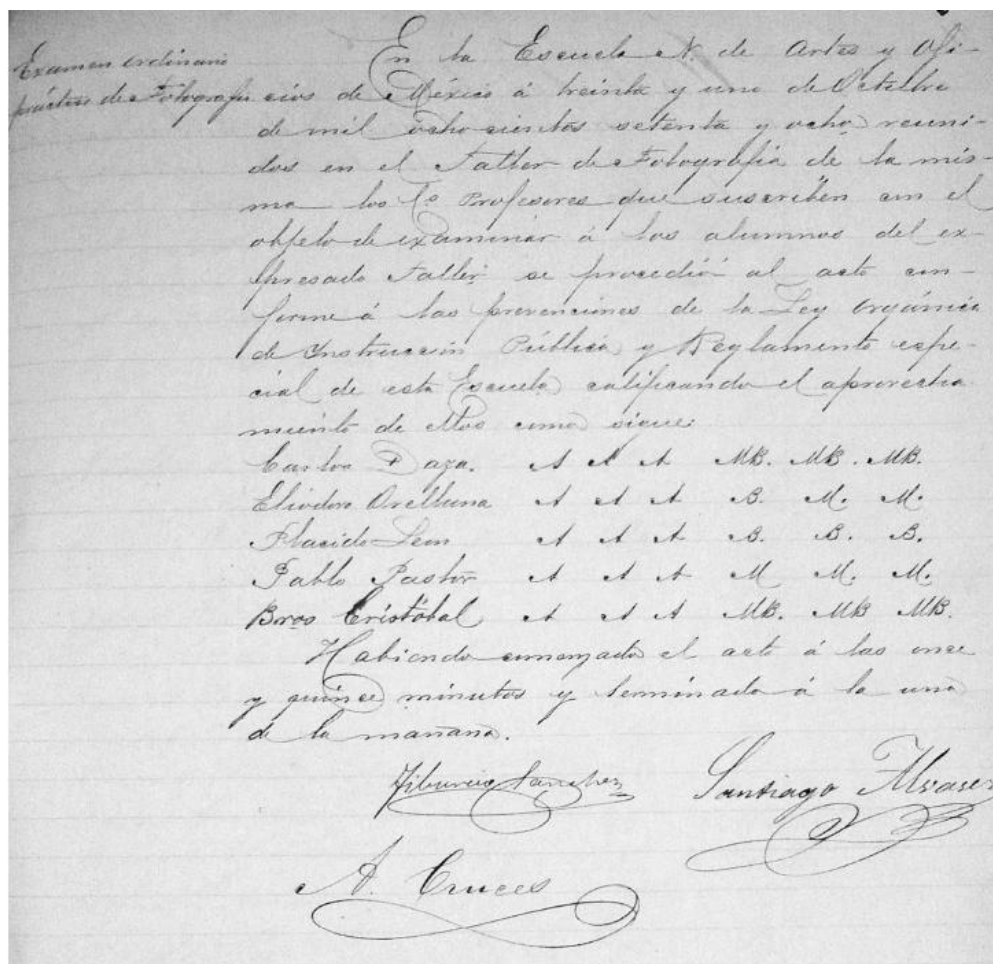 Examen ordinario
práctico de Fotografía
En la Escuela N. de Artes y Ofi-
cios de México á treinta y uno de Octubre
de mil ochocientos setenta y ocho reuni-
dos en el Taller de Fotografía de la mis-
ma los Profesores que suscriben con el
objeto de examinar á los alumnos del ex-
presado Taller se procedió al acto con-
forme á las prevenciones de la Ley orgánica
de Instrucción Pública y Reglamento espe-
cial de esta Escuela calificando el aprovecha
miento de ellos como sigue:
Carlos Daza. A A A MB. MB. MB.
Eliodoro Orellana A A A B. M. M.
Placido Leon A A A B. B. B.
Pablo Pastor A A A M M. M.
Bros Cristóbal A A A MB. MB MB.
Habiendo comenzado el acto á las once
y quince minutos y terminado á la una
de la mañana.
Tiburcio Sanchez Santiago Alvarez
A. Cruces